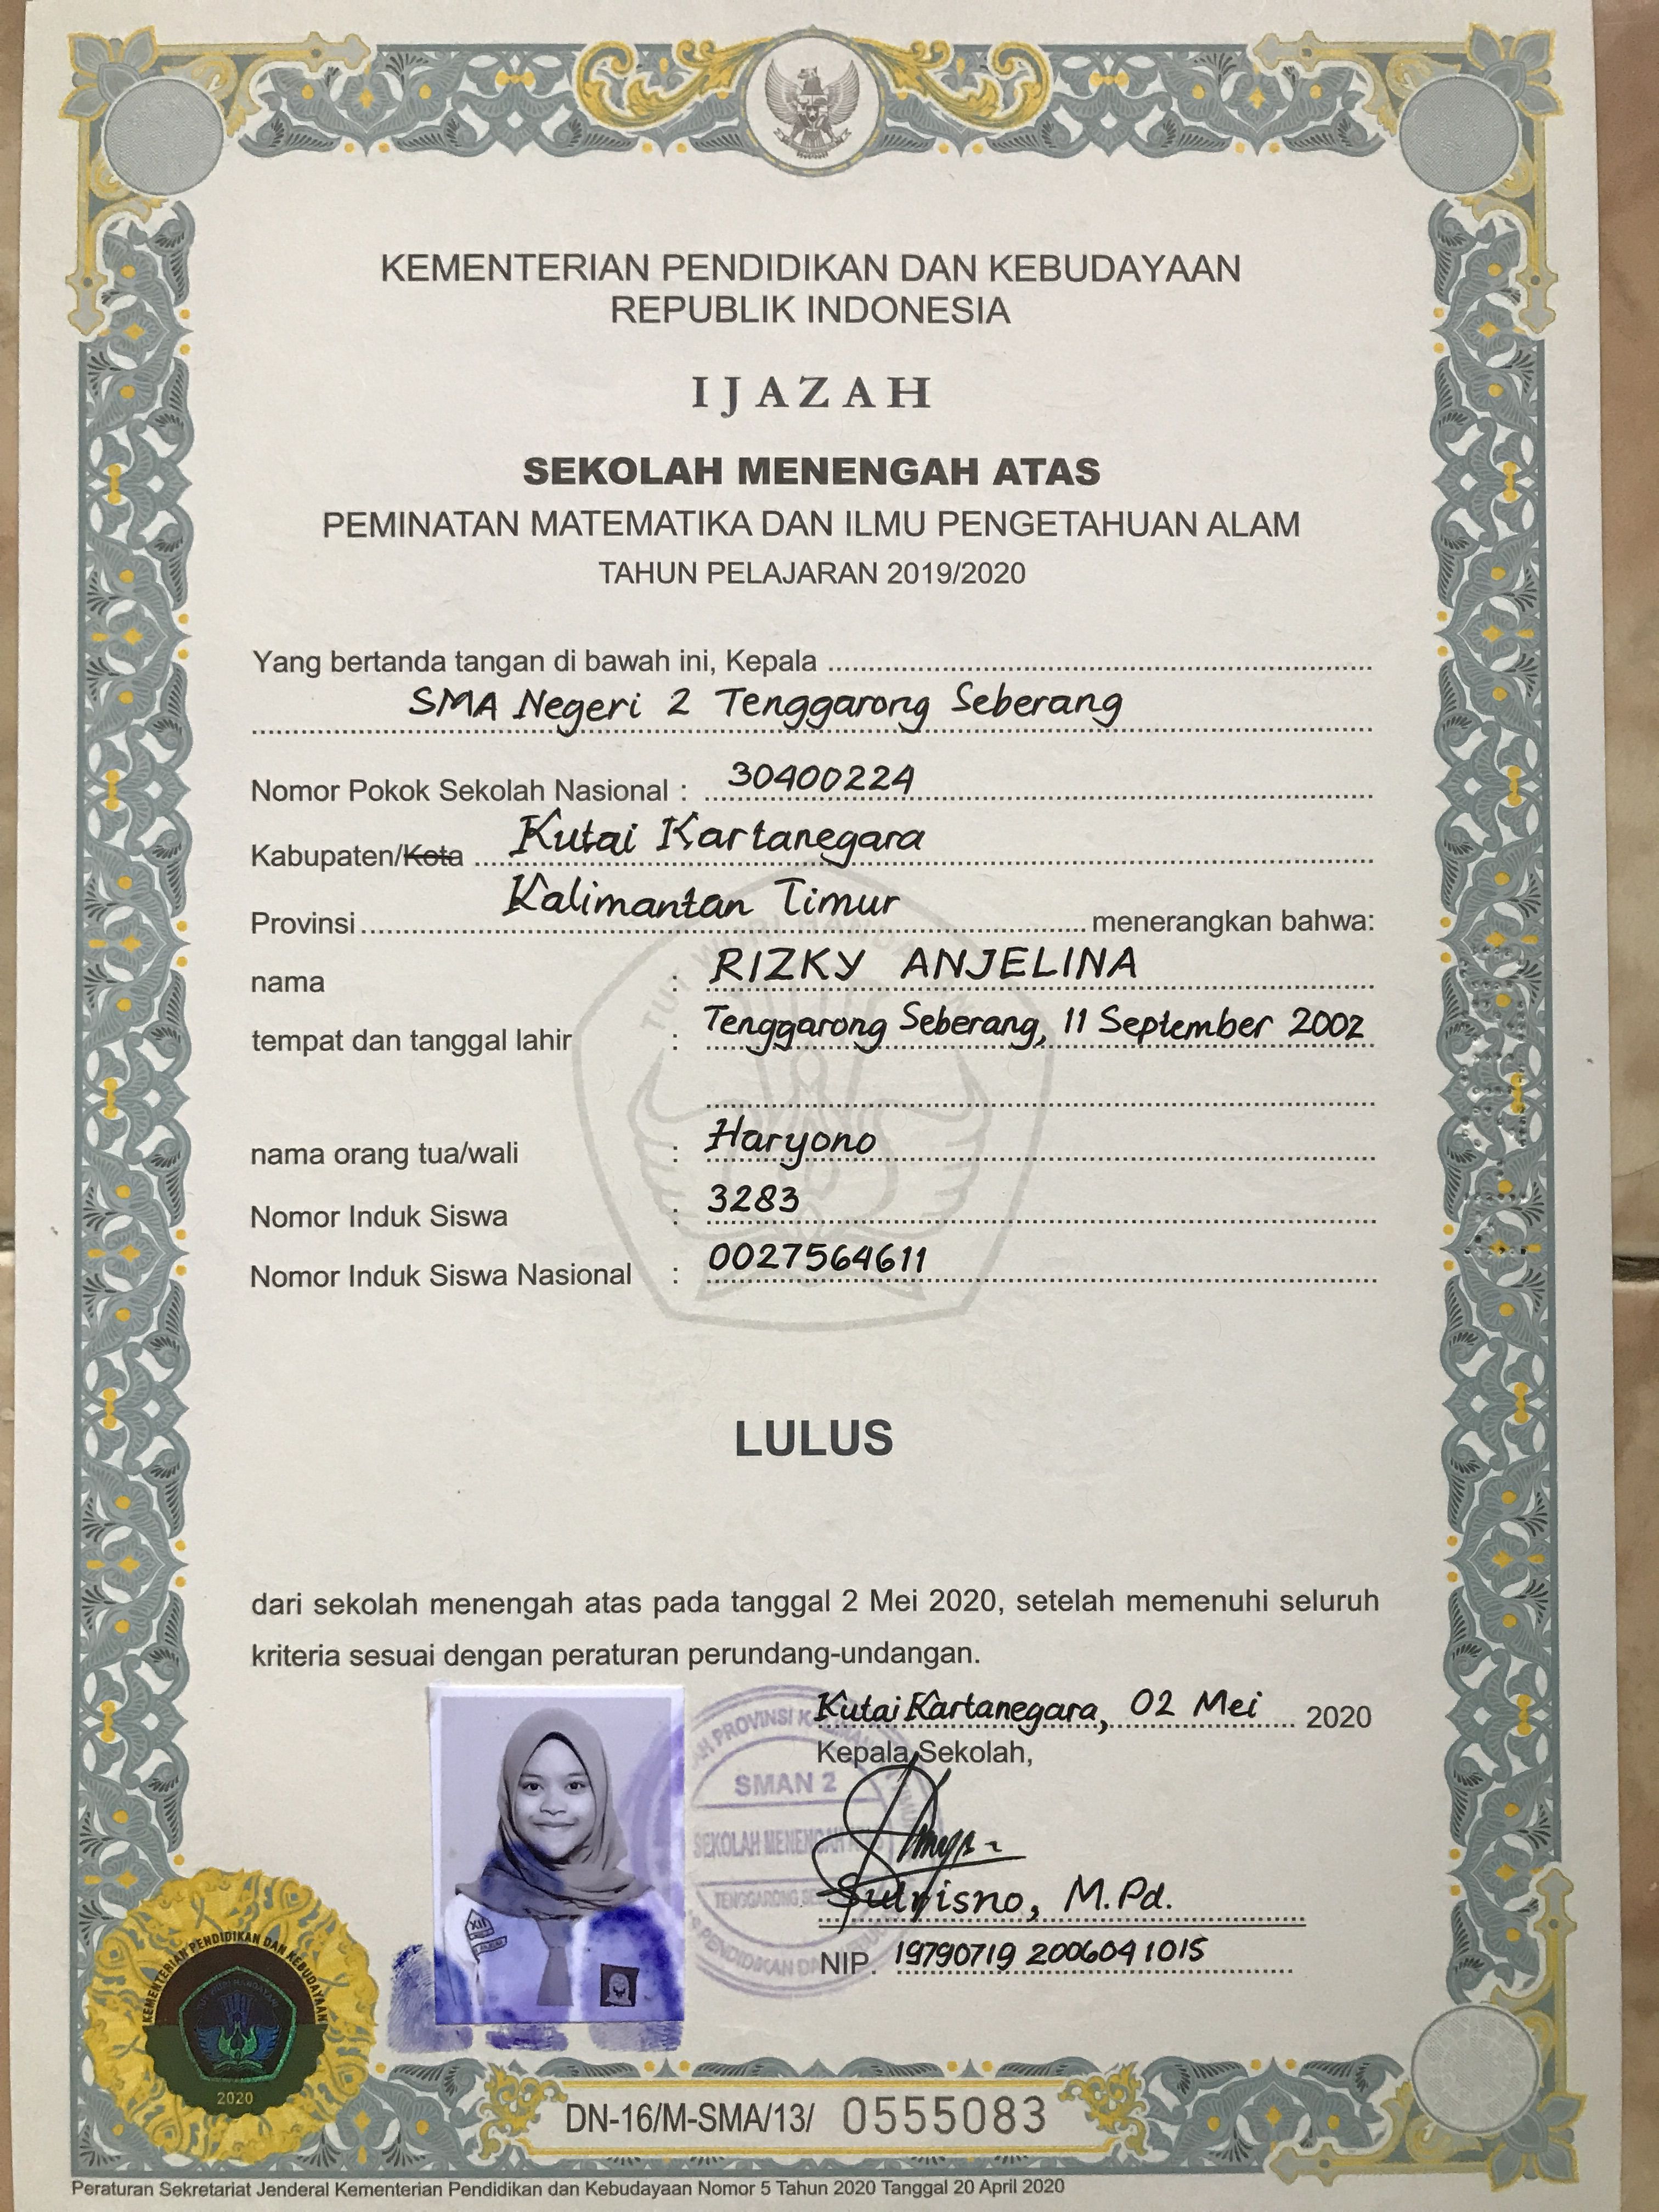 KEMENTERIAN PENDIDIKAN DAN KEBUDAYAAN
REPUBLIK INDONESIA
IJAZAH
SEKOLAH MENENGAH ATAS
PEMINATAN MATEMATIKA DAN ILMU PENGETAHUAN ALAM
TAHUN PELAJARAN 2019/2020
Yang bertanda tangan di bawah ini, Kepala
SMA Negeri 2 Tenggarong Seberang
Nomor Pokok Sekolah Nasional : 30400224
Kabupaten/Kota Kutai Kartanegara
Provinsi Kalimantan Timur menerangkan bahwa:
nama : RIZKY ANJELINA
tempat dan tanggal lahir : Tenggarong Seberang, 11 September 2002
nama orang tua/wali : Haryono
Nomor Induk Siswa : 3283
Nomor Induk Siswa Nasional : 0027564611
TUT WURI HANDAYANI
LULUS
dari sekolah menengah atas pada tanggal 2 Mei 2020, setelah memenuhi seluruh
kriteria sesuai dengan peraturan perundang-undangan.
Kutai Kartanegara, 02 Mei 2020
Kepala Sekolah,
SMAN 2
SEKOLAH MENENGAH
Sutrisno, M.Pd.
NIP. 19790719 200604 1 015
XII
KEMENTERIAN PENDIDIKAN DAN KEBUDAYAAN
TUT WURI HANDAYANI
2020
DN-16/M-SMA/13/ 0555083
Peraturan Sekretariat Jenderal Kementerian Pendidikan dan Kebudayaan Nomor 5 Tahun 2020 Tanggal 20 April 2020